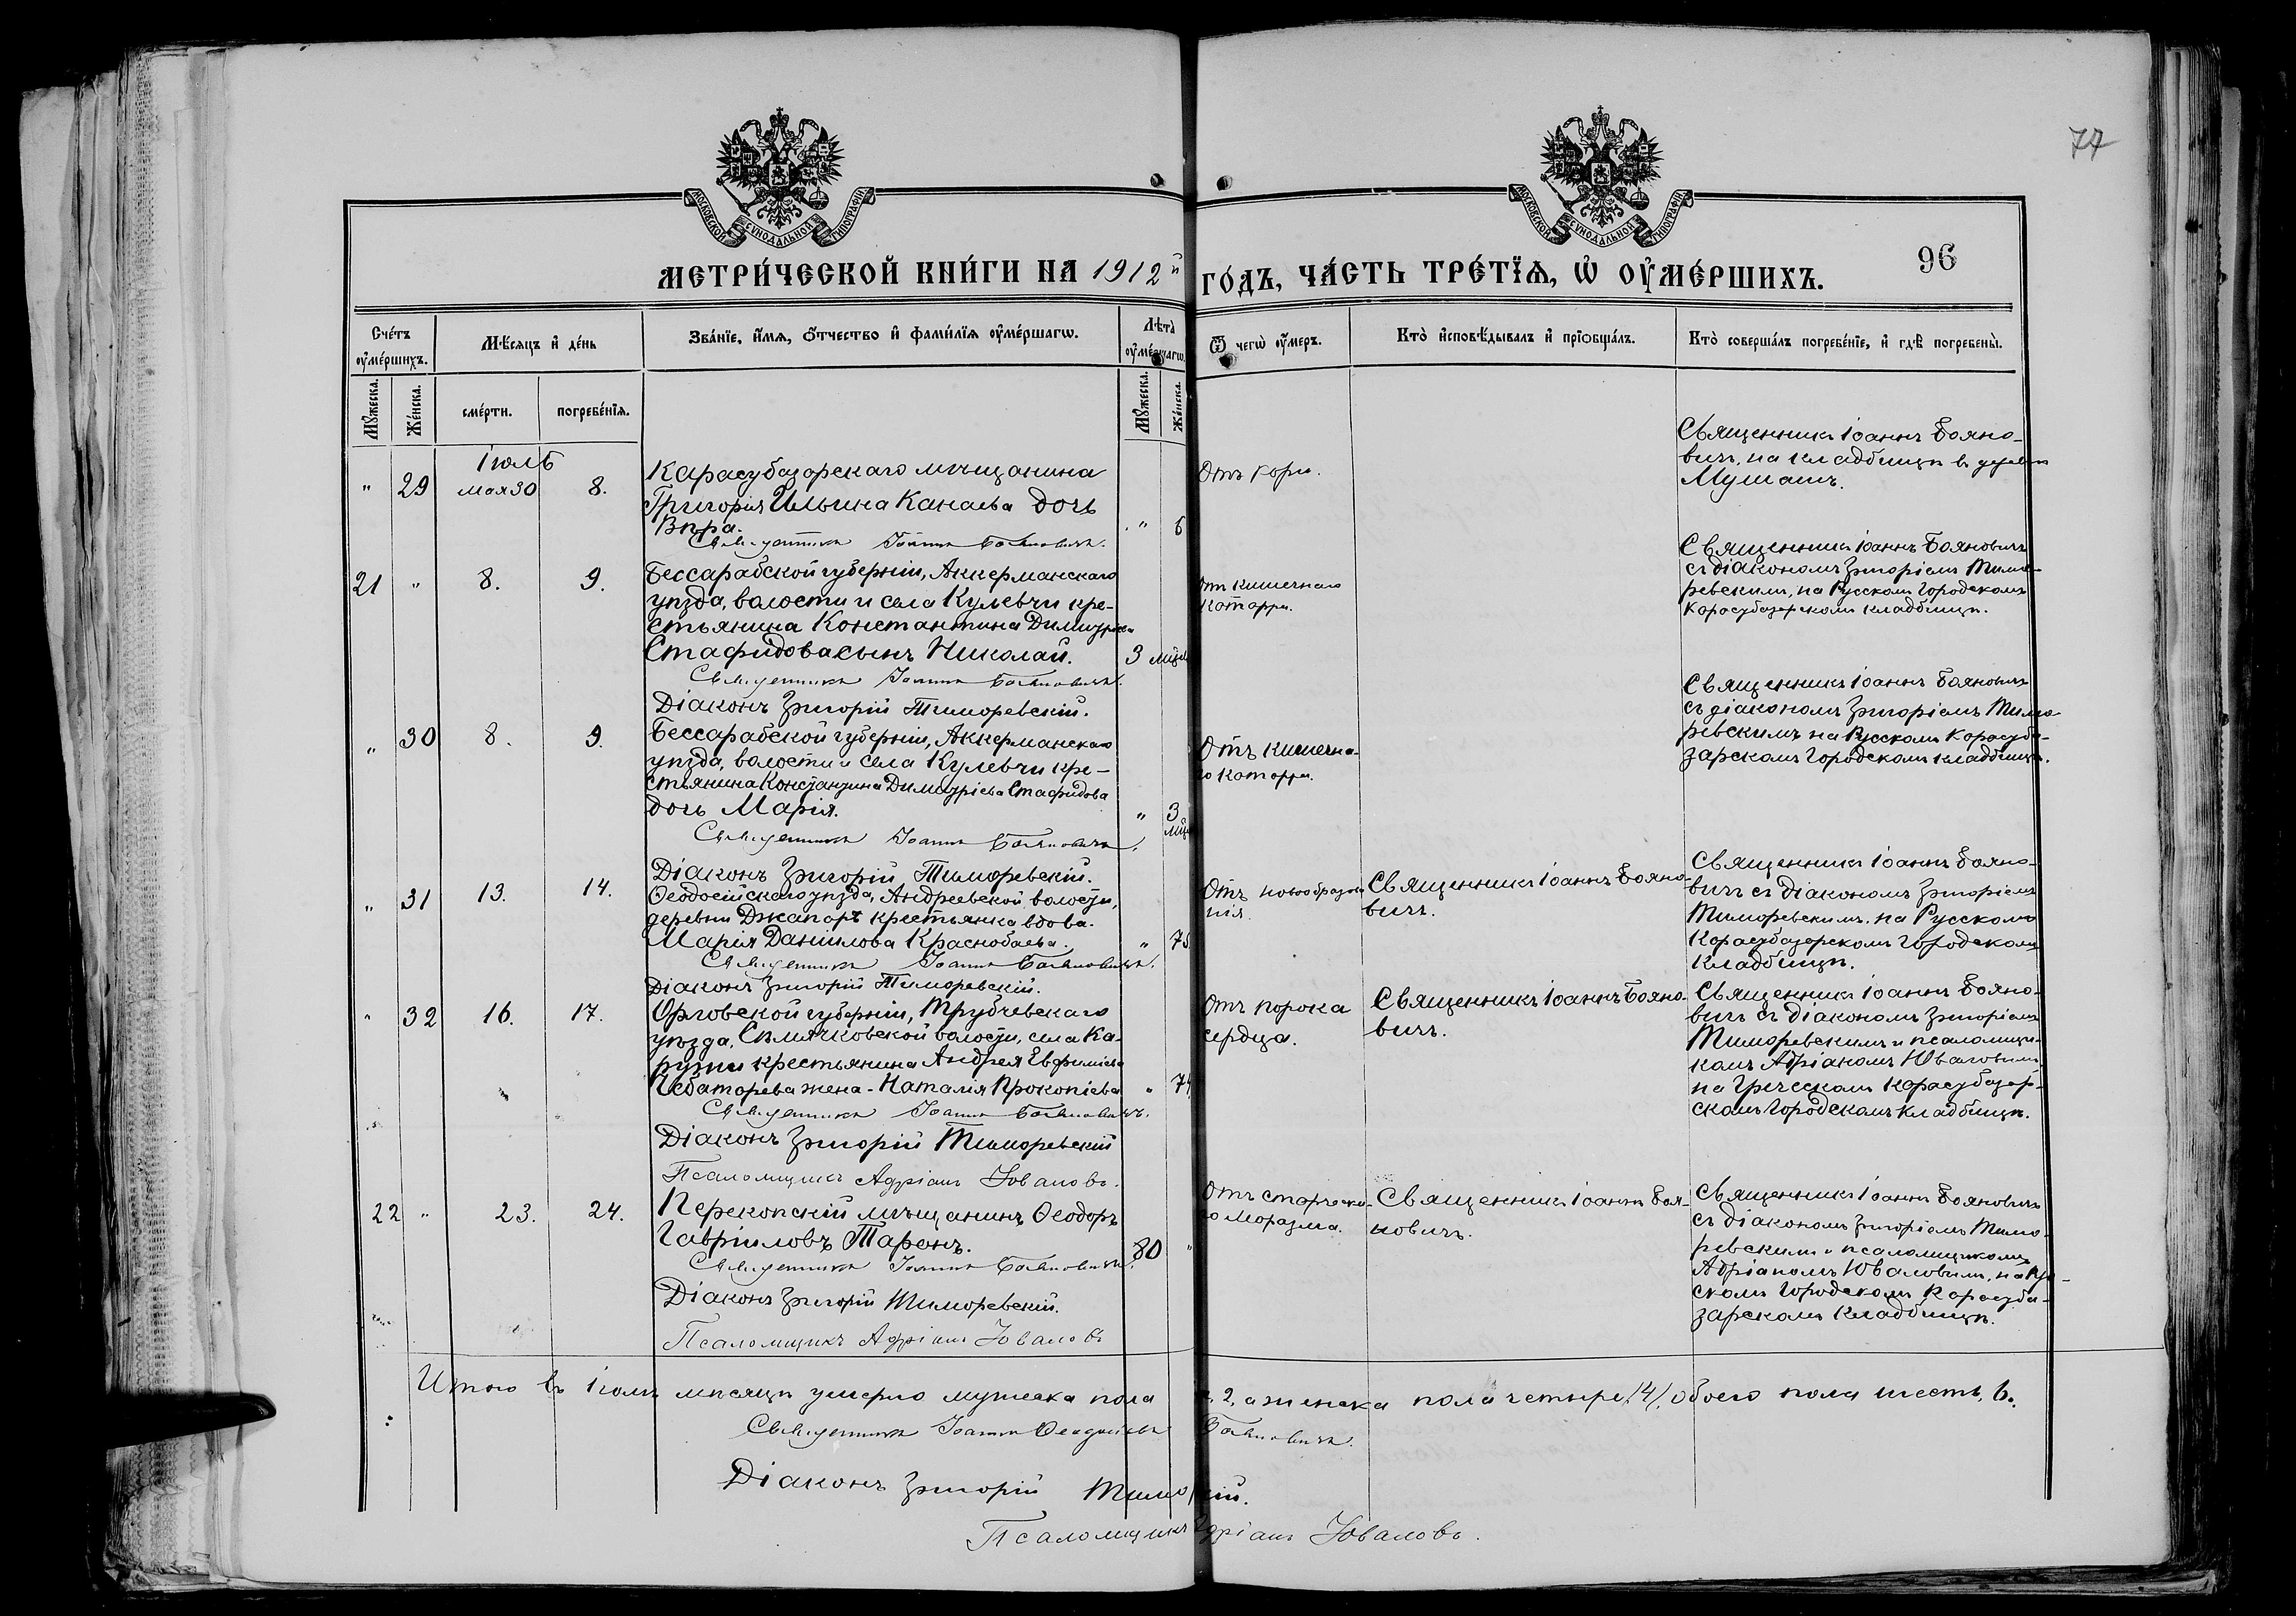 77
МОСКОВСКОЙ СѴНОДАЛЬНОЙ ТИПОГРАФІИ
МОСКОВСКОЙ СѴНОДАЛЬНОЙ ТИПОГРАФІИ
96
МЕТРИ́ЧЕСКОЙ КНИ́ГИ НА 1912й ГО́ДЪ, ЧА́СТЬ ТРЕ́ТЇѦ, Ѡ҆ ОУ҆МЕ́РШИХЪ.
Сче́тъ оу҆ме́ршихъ.
Мѣ́сяцъ и҆ де́нь
Зва́нїе, и҆́мѧ, ѻ҆́тчество и҆ фами́лїѧ оу҆ме́ршагѡ.
Лѣ́та оу҆ме́ршагѡ.
Ѿ чегѡ̀ оу҆́меръ.
Кто̀ и҆сповѣ́дывалъ и҆ прїѻбща́лъ.
Кто̀ соверша́лъ погребе́нїе, и҆ гдѣ̀ погребены̀.
Мꙋ́жеска.
Же́нска.
сме́рти.
погребе́нїѧ.
Мꙋ́жеска.
Же́нска.
Іюль
" 29 мая 30 8.
Карасубазарскаго мѣщанина
Григорія Ильина Канаева дочь
Вѣра. " 6
Священникъ Іоаннъ Бояновичъ.
Отъ кори.
Священникъ Іоаннъ Бояно-
вичъ, на кладбищѣ въ деревнѣ
Мушашъ.
21 " 8. 9.
Бессарабской губерніи, Аккерманскаго
уѣзда, волости и села Кулевчи кре-
стьянина Константина Димитріева
Стафидова сынъ Николай. 3 мѣс.
Священникъ Іоаннъ Бояновичъ.
Діаконъ Григорій Тиморевскій.
Отъ кишечнаго
катарра.
Священникъ Іоаннъ Бояновичъ
съ діакономъ Григоріемъ Тимо-
ревскимъ, на Русскомъ городскомъ
Карасубазарскомъ кладбищѣ.
" 30 8. 9.
Бессарабской губерніи, Аккерманскаго
уѣзда, волости и села Кулевчи кре-
стьянина Константина Димитріева Стафидова
дочь Марія. " 3 мѣс.
Священникъ Іоаннъ Бояновичъ.
Діаконъ Григорій Тиморевскій.
Отъ кишечна-
го катарра.
Священникъ Іоаннъ Бояновичъ
съ діакономъ Григоріемъ Тимо-
ревскимъ на Русскомъ Карасуба-
зарскомъ городскомъ кладбищѣ.
" 31 13. 14.
Ѳеодосійскаго уѣзда, Андреевской волости,
деревни Джапаръ крестьянка вдова
Марія Данилова Краснобаева. " 75
Священникъ Іоаннъ Бояновичъ.
Діаконъ Григорій Тиморевскій.
Отъ новообразова
нія.
Священникъ Іоаннъ Бояно-
вичъ.
Священникъ Іоаннъ Бояно-
вичъ съ діакономъ Григоріемъ
Тиморевскимъ, на Русскомъ
Карасубазарскомъ городскомъ
кладбищѣ.
" 32 16. 17.
Орловской губерніи, Трубчевскаго
уѣзда, Сѣмячковской волости, села Ка-
рпыши крестьянина Андрея Евфиміева
Чеботарева жена - Наталія Прокопіева " 74
Священникъ Іоаннъ Бояновичъ.
Діаконъ Григорій Тиморевскій
Псаломщикъ Адріанъ Юваловъ.
Отъ порока
сердца.
Священникъ Іоаннъ Бояно-
вичъ.
Священникъ Іоаннъ Бояно-
вичъ съ діакономъ Григоріемъ
Тиморевскимъ и псаломщи-
комъ Адріаномъ Юваловымъ
на Греческомъ Карасубазар-
скомъ городскомъ кладбищѣ.
22 " 23. 24.
Перекопскій мѣщанинъ Ѳеодоръ
Гавріиловъ Таранъ. 80 "
Священникъ Іоаннъ Бояновичъ.
Діаконъ Григорій Тиморевскій.
Псаломщикъ Адріанъ Юваловъ
Отъ старческа-
го маразма.
Священникъ Іоаннъ Боя-
новичъ.
Священникъ Іоаннъ Бояновичъ
съ діакономъ Григоріемъ Тимо-
ревскимъ и псаломщикомъ
Адріаномъ Юваловымъ, на Рус-
скомъ городскомъ Карасуба-
зарскомъ кладбищѣ.
Итого въ Іюлѣ мѣсяцѣ умерло мужеска пола 2, а женска пола четыре /4/, обоего пола шесть, 6.
Священникъ Іоаннъ Ѳеодосіевъ Бояновичъ.
Діаконъ Григорій Тимо кій.
Псаломщикъ Адріанъ Юваловъ.